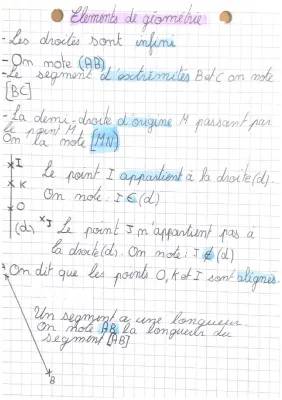 Elements de géométrie
- Les droites sont infini
- On note (AB)
- Le segment d'extrémités B et C on note
[BC]
- La demi-droite d'origine M passant par
le point M
On la note [MN)
I
K
O
(d)
Le point I appartient à la droite (d).
On note : I ∈ (d)
J
Le point J n'appartient pas à
la droite (d). On note : I ∉ (d)
On dit que les points O, K et I sont alignés.
Un segment a une longueur
On note AB la longueur du
segment [AB]
B